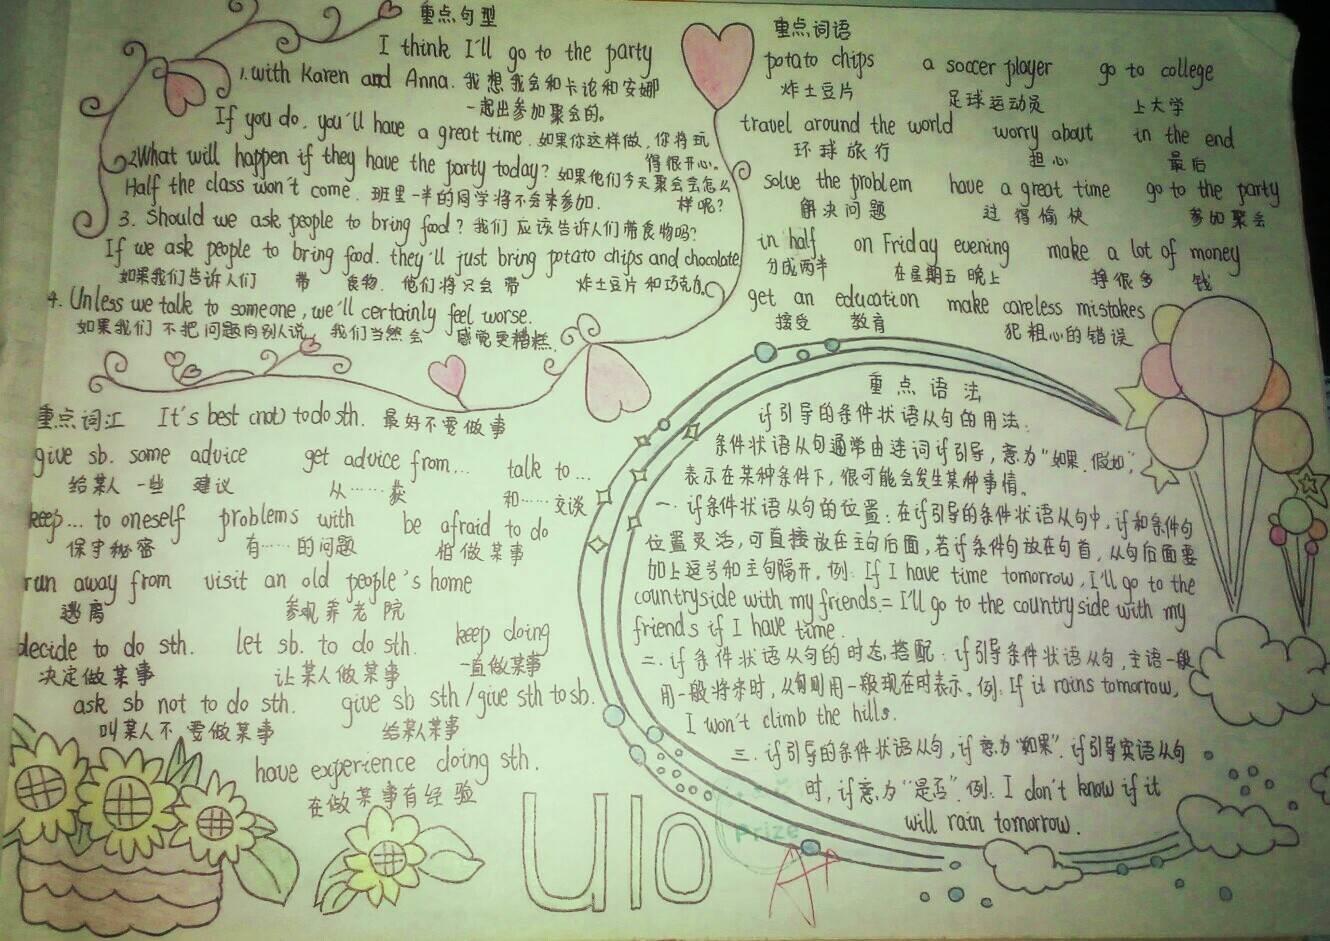 重点句型
I think I'll go to the party
1. with Karen and Anna. 我想我会和卡论和安娜
一起出参加聚会的。
If you do, you'll have a great time. 如果你这样做，你将玩
得很开心。
2. What will happen if they have the party today? 如果他们今天聚会会怎么
样呢？
Half the class won't come. 班里一半的同学将不会来参加.
3. Should we ask people to bring food? 我们应该告诉人们带食物吗？
If we ask people to bring food. they'll just bring potato chips and chocolate
如果我们告诉人们 带 食物. 他们将只会带 炸土豆片和巧克力.
4. Unless we talk to someone, we'll certainly feel worse.
如果我们不把问题向别人说，我们当然会 感觉更糟糕.
重点词语
potato chips a soccer player go to college
炸土豆片 足球运动员 上大学
travel around the world worry about in the end
环球旅行 担心 最后
solve the problem have a great time go to the party
解决问题 过得愉快 参加聚会
in half on Friday evening make a lot of money
分成两半 在星期五晚上 挣很多 钱
get an education make careless mistakes
接受 教育 犯粗心的错误
重点词汇 It's best (not) to do sth. 最好不要做事
give sb. some advice get advice from... talk to ...
给某人一些 建议 从……获 和……交谈
keep... to oneself problems with be afraid to do
保守秘密 有……的问题 怕做某事
run away from visit an old people's home
逃离 参观养老院
decide to do sth. let sb. to do sth. keep doing
决定做某事 让某人做某事 一直做某事
ask sb not to do sth. give sb sth/give sth to sb.
叫某人不要做某事 给某人某事
have experience doing sth.
在做某事有经验
重点语法
if引导的条件状语从句的用法：
条件状语从句通常由连词if引导，意为“如果，假如”，
表示在某种条件下，很可能会发生某种事情。
一. if条件状语从句的位置：在if引导的条件状语从句中，if和条件句
位置灵活，可直接放在主句后面，若if条件句放在句首，从句后面要
加上逗号和主句隔开。例：If I have time tomorrow, I'll go to the
countryside with my friends. = I'll go to the countryside with my
friends if I have time.
二. if条件状语从句的时态搭配：if引导条件状语从句，主语一般
用一般将来时，从句则用一般现在时表示。例：If it rains tomorrow,
I won't climb the hills.
三. if引导的条件状语从句，if意为“如果”. if引导宾语从句
时，if意为“是否”. 例：I don't know if it
will rain tomorrow.
U10
Prize
A++